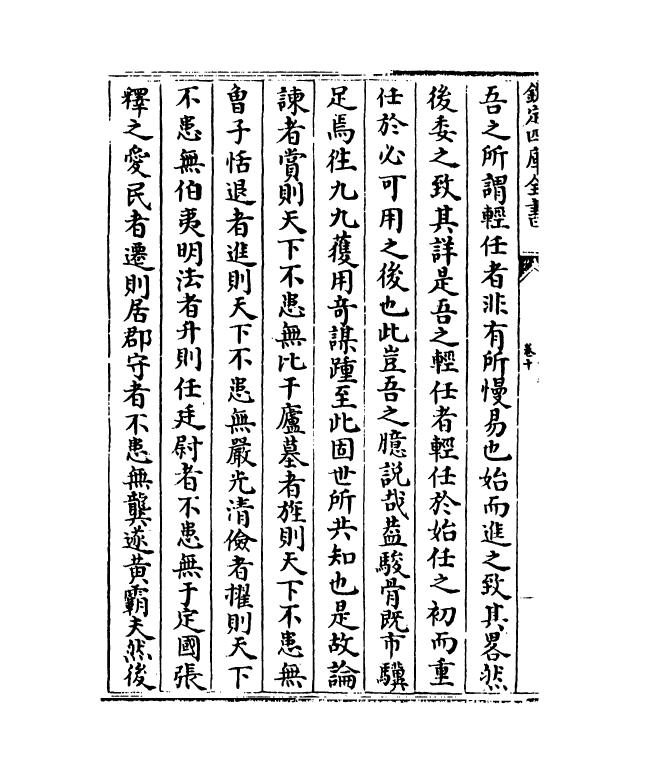 欽定四庫全書
卷十
吾之所謂輕任者非有所慢易也始而進之致其畧然
後委之致其詳是吾之輕任者輕任於始任之初而重
任於必可用之後也此豈吾之臆説哉葢駿骨既市驥
足焉徃九九獲用竒謀踵至此固世所共知也是故論
諫者賞則天下不患無比干廬墓者旌則天下不患無
曽子恬退者進則天下不患無嚴光清儉者擢則天下
不患無伯夷明法者升則任廷尉者不患無于定國張
釋之愛民者遷則居郡守者不患無龔遂黄霸夫然後